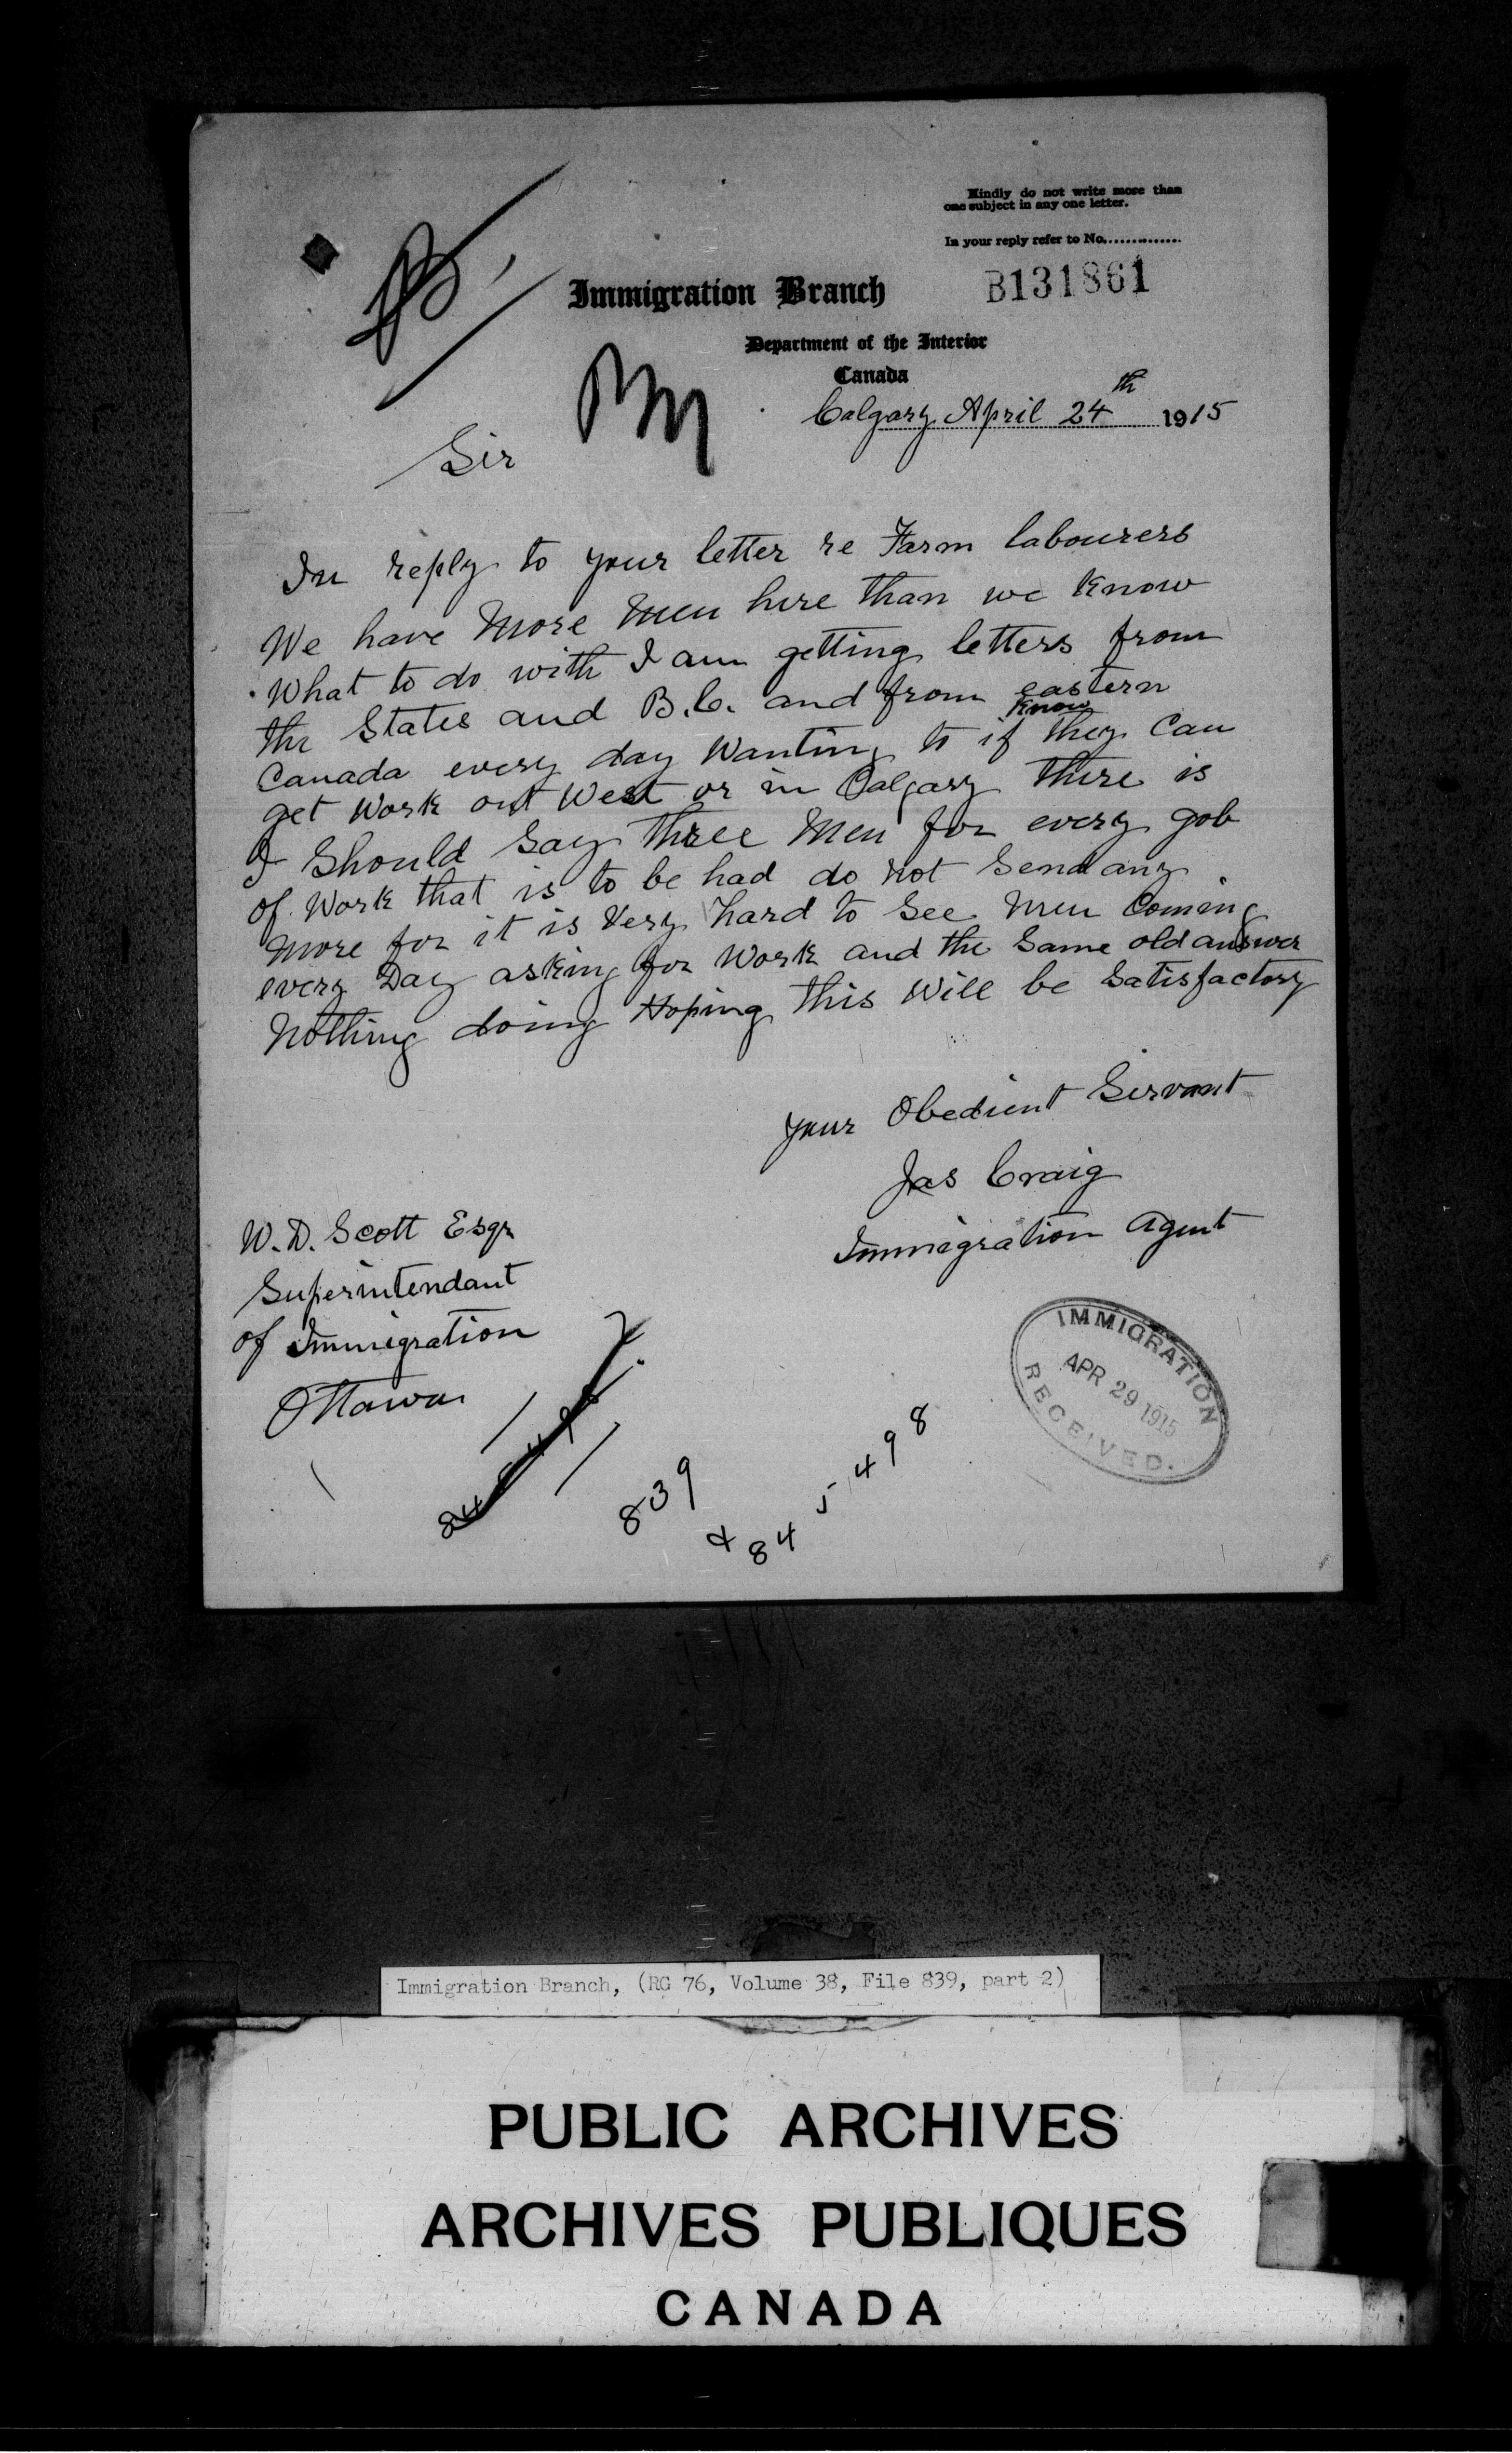 Kindly do not write more than
one subject in any one letter.
In your reply refer to No..............
B131861
Immigration Branch
Department of the Interior
Canada
Calgary April 24th 1915
Sir
In reply to your letter re Farm labourers
We have More Men here than we Know
What to do with I am getting letters from
the States and B.C. and from eastern
Canada every day Wanting to know if they Can
get Work out West or in Calgary there is
I Should Say three Men for every gob
of Work that is to be had do Not Send any
More for it is Very hard to See Men Coming
every Day asking for Work and the Same old answer
Nothing doing Hoping this Will be Satisfactory
your Obedient Servant
Jas Craig
Immigration Agent
W. D. Scott Esqr
Superintendant
of Immigration
Ottawa
IMMIGRATION
APR 29 1915
RECEIVED.
839
& 845498
Immigration Branch, (RG 76, Volume 38, File 839, part 2)
PUBLIC ARCHIVES
ARCHIVES PUBLIQUES
CANADA